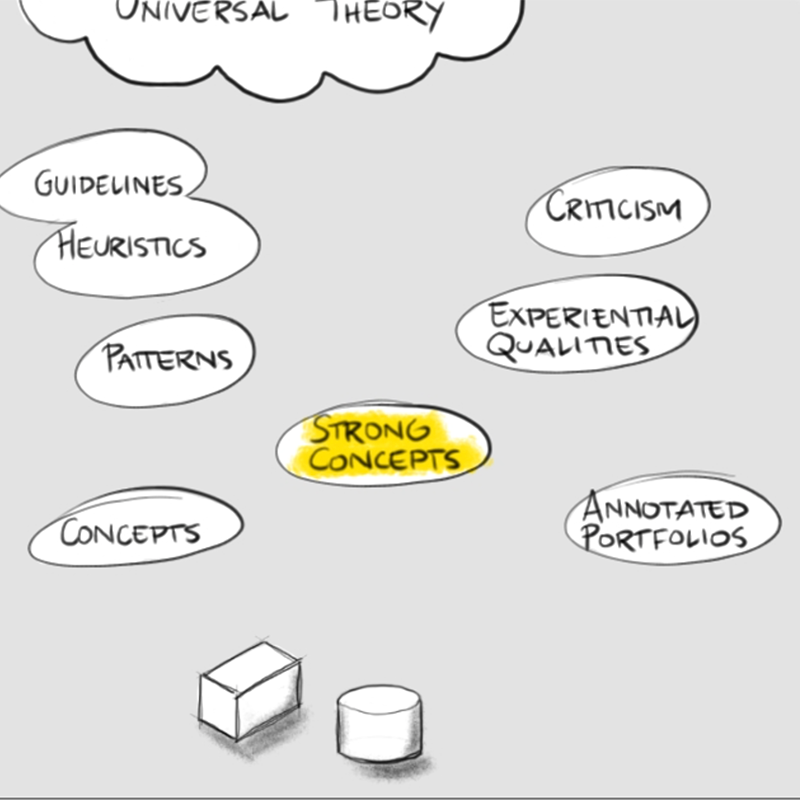 UNIVERSAL THEORY
GUIDELINES
HEURISTICS
CRITICISM
PATTERNS
EXPERIENTIAL
QUALITIES
STRONG
CONCEPTS
CONCEPTS
ANNOTATED
PORTFOLIOS